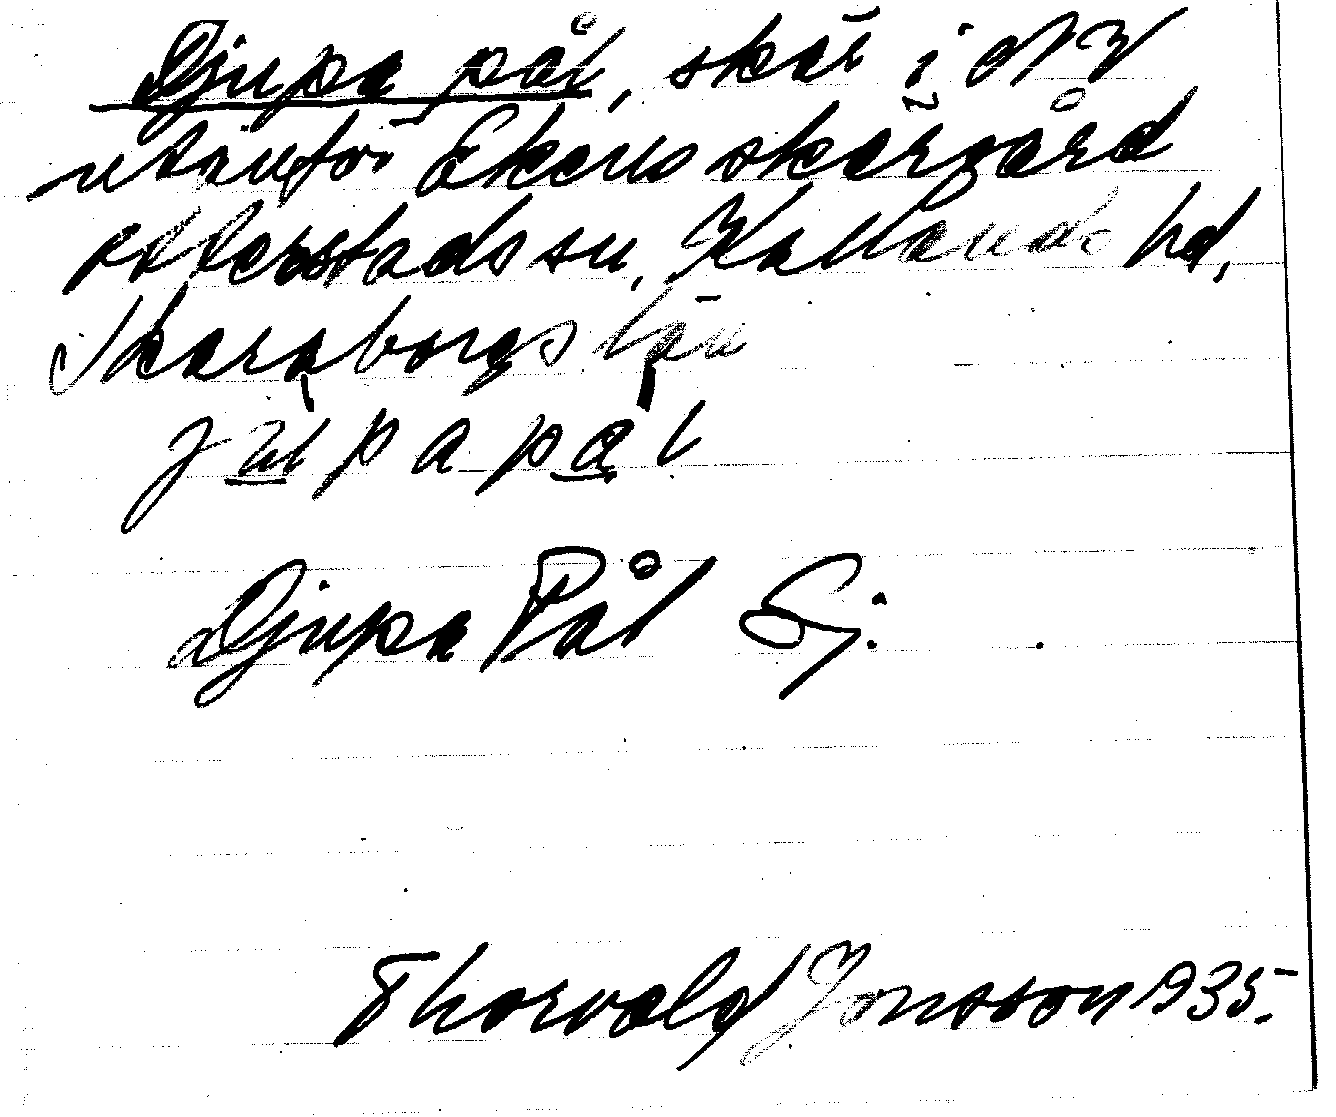 Djupa pål, skär i NV
utanför Ekens skärgård
Otterstads sn, Kållands hd,
Skaraborgs län
jupapål
Djupa Pål Gj:
Thorvald Jonsson 1935.